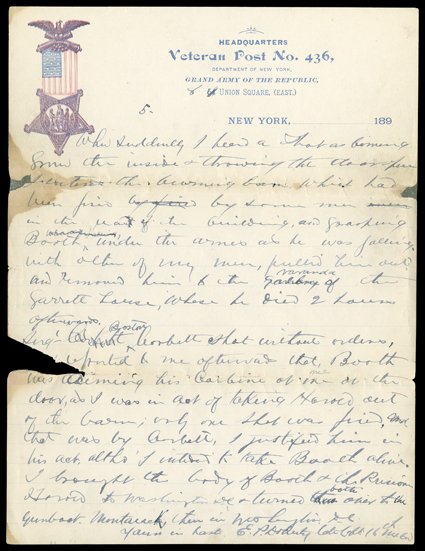 HEADQUARTERS
Veteran Post No. 436,
DEPARTMENT OF NEW YORK,
GRAND ARMY OF THE REPUBLIC,
UNION SQUARE, (EAST.)
5.
NEW YORK, 189
When suddenly I heard a shot as coming
from the inside & throwing the door open
I entered the burning barn which had
been fired by some men
in the rear of the building, and grasping
Booth under the armes as he was falling
with other of my men, pulled him out
and removed him to the veranda of the
Garrett house, whose he died 2 hours
afterwards.
Serg't Boston Corbett shot without orders,
reported to me afterward that, Booth
was aimming his carbine at me at the
door, as I was in act of taking Harold out
of the barn; only one shot was fired, and
that was by Corbett, I justified him in
his act, altho' I intend to take Booth alive.
I brought the body of Booth & the Prisoner
Harold to Washington DC & turned both over to the
gunboat Montauck, then in Washington DC
Yours in hast E. P. Doherty late Capt 16th NY Cav